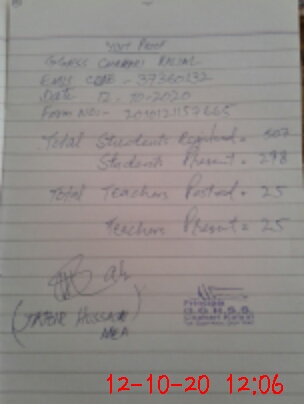 Visit Proof
GGHSS Chappri Kalial
EMIS CODE - 37360132
Date 12-10-2020
Total Students Registered = 307
Students Present = 298
Total Teachers Posted = 25
Teachers Present = 25
HUSSAIN
MEA
Principal
G.G.H.S.S.
12-10-20 12:06